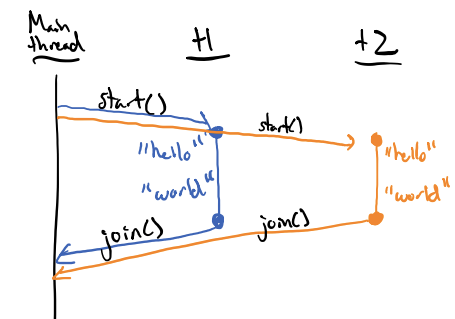 Main
thread
t1
t2
start()
start()
"hello"
"hello"
"world"
"world"
join()
join()